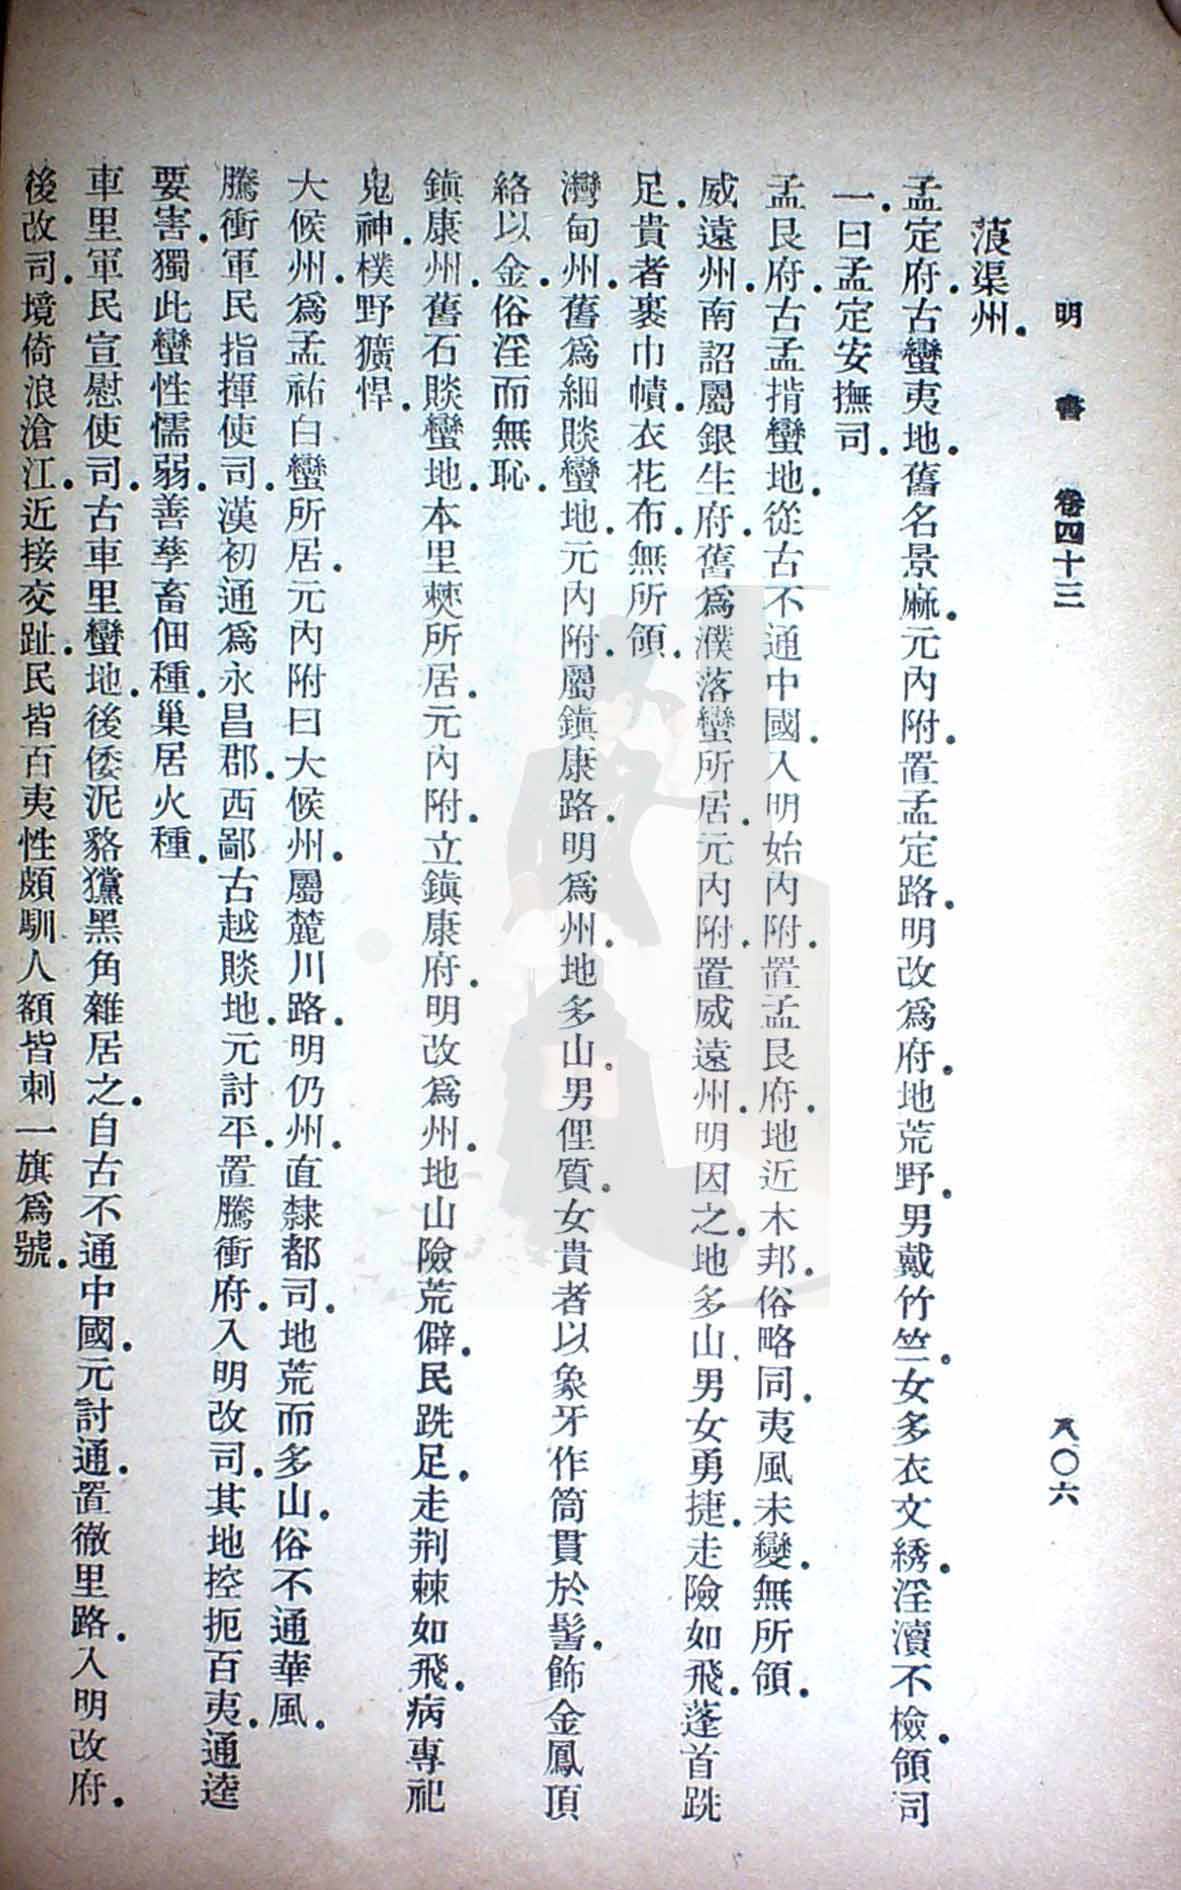 明書 卷四十三 八〇六
蒗渠州．
孟定府．古蠻夷地．舊名景麻．元內附．置孟定路．明改為府．地荒野．男戴竹笠．女多衣文綉．淫瀆不檢．領司
一．曰孟定安撫司．
孟艮府．古孟掯蠻地．從古不通中國．入明始內附．置孟艮府．地近木邦．俗略同．夷風未變．無所領．
威遠州．南詔屬銀生府．舊為濮落蠻所居．元內附．置威遠州．明因之．地多山．男女勇捷．走險如飛．蓬首跣
足．貴者裹巾幘．衣花布．無所領．
灣甸州．舊為細賧蠻地．元內附．屬鎮康路．明為州．地多山．男俚質．女貴者以象牙作筒貫於髻．飾金鳳頂
絡以金．俗淫而無恥．
鎮康州．舊石賧蠻地．本里僰所居．元內附．立鎮康府．明改為州．地山險荒僻．民跣足．走荆棘如飛．病專祀
鬼神．樸野獷悍．
大候州．為孟祐白蠻所居．元內附曰大候州．屬麓川路．明仍州．直隸都司．地荒而多山．俗不通華風．
騰衝軍民指揮使司．漢初通為永昌郡．西鄙古越賧地．元討平．置騰衝府．入明改司．其地控扼百夷．通逵
要害．獨此蠻性懦弱．善孳畜佃種．巢居火種．
車里軍民宣慰使司．古車里蠻地．後倭泥貉獛黑角雜居之．自古不通中國．元討通．置徹里路．入明改府．
後改司．境倚浪滄江．近接交趾．民皆百夷．性頗馴．人額皆刺一旗為號．